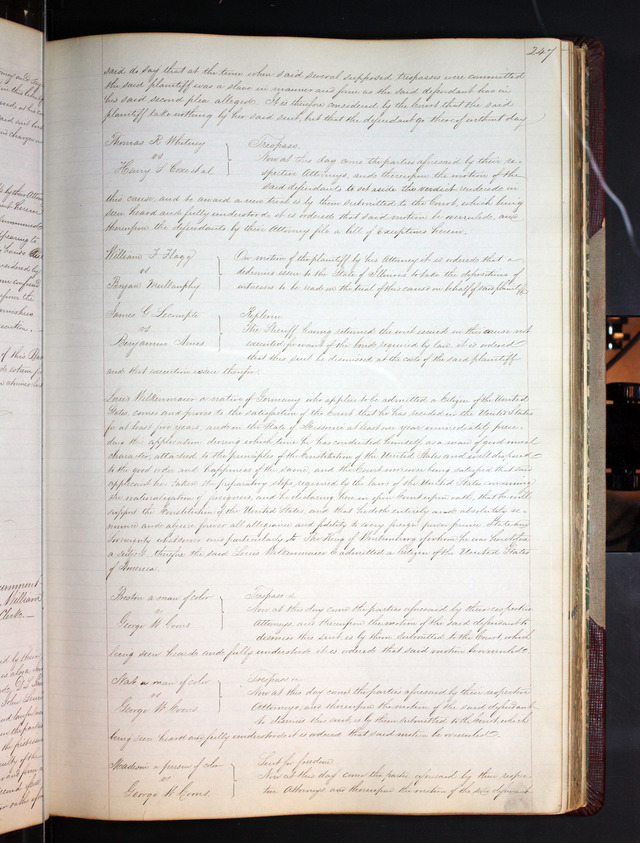 247
said do say that at the time when said several supposed trespasses were committed
the said plaintiff was a slave in manner and form as the said defendant has in
his said second plea alleged. It is therefore considered by the Court that the said
plaintiff take nothing by his said suit, but that the defendant go thereof without day
Thomas R. Whitney
vs
Henry S. Coxe et al
Trespass.
Now at this day come the parties aforesaid by their re-
spective Attorneys, and thereupon the motion of the
said defendants to set aside the verdict rendered in
this cause, and to award a new trial is by them submitted to the Court, which being
seen heard and fully understood it is ordered that said motion be overruled, and
thereupon the defendants by their Attorney file a bill of exceptions herein.
William F. Flagg
vs
Bryan Mullanphy
On motion of the plaintiff by his Attorney it is ordered that a
dedimus issue to the State of Illinois to take the depositions of
witnesses to be read on the trial of this cause on behalf of said plaintiff
James C. Lecompte
vs
Benjamin Ames
Replevin
The Sheriff having returned the writ issued in this cause not
executed for want of the bond required by law. It is ordered
that this suit be dismissed at the costs of the said plaintiff
and that execution issue therefor.
Louis Wilkenmaier a native of Germany who applies to be admitted a Citizen of the United
States, comes and proves to the satisfaction of the Court that he has resided in the United States
for at least five years, and in the State of Missouri at least one year immediately prece-
ding his application during which time he has conducted himself as a man of good moral
character, attached to the principles of the Constitution of the United States and well disposed
to the good order and happiness of the same, and the Court moreover being satisfied that said
applicant has taken the preparatory steps required by the laws of the United States concerning
the naturalization of foreigners, and he declaring here in open Court upon oath, that he will
support the Constitution of the United States, and that he doth entirely and absolutely re-
nounce and abjure forever all allegiance and fidelity to every foreign power prince State and
Sovereignty whatsoever and particularly to The King of Wurtemberg of whom he was heretofore
a subject, therefore the said Louis Wilkenmaier is admitted a Citizen of the United States
of America.
Preston a man of color
vs
George W. Coons
Trespass &
Now at this day come the parties aforesaid by their respective
Attorneys, and thereupon the motion of the said defendant to
dismiss this suit, is by them submitted to the Court, which
being seen heard and fully understood it is ordered that said motion be overruled.
Nat a man of color
vs
George W. Coons
Trespass &
Now at this day come the parties aforesaid by their respective
Attorneys, and thereupon the motion of the said defendant
to dismiss this suit, is by them submitted to the Court, which
being seen heard and fully understood it is ordered that said motion be overruled.
Madison a person of color
vs
George W. Coons.
Suit for freedom
Now at this day come the parties aforesaid by their respec-
tive Attorneys, and thereupon the motion of the said defendant